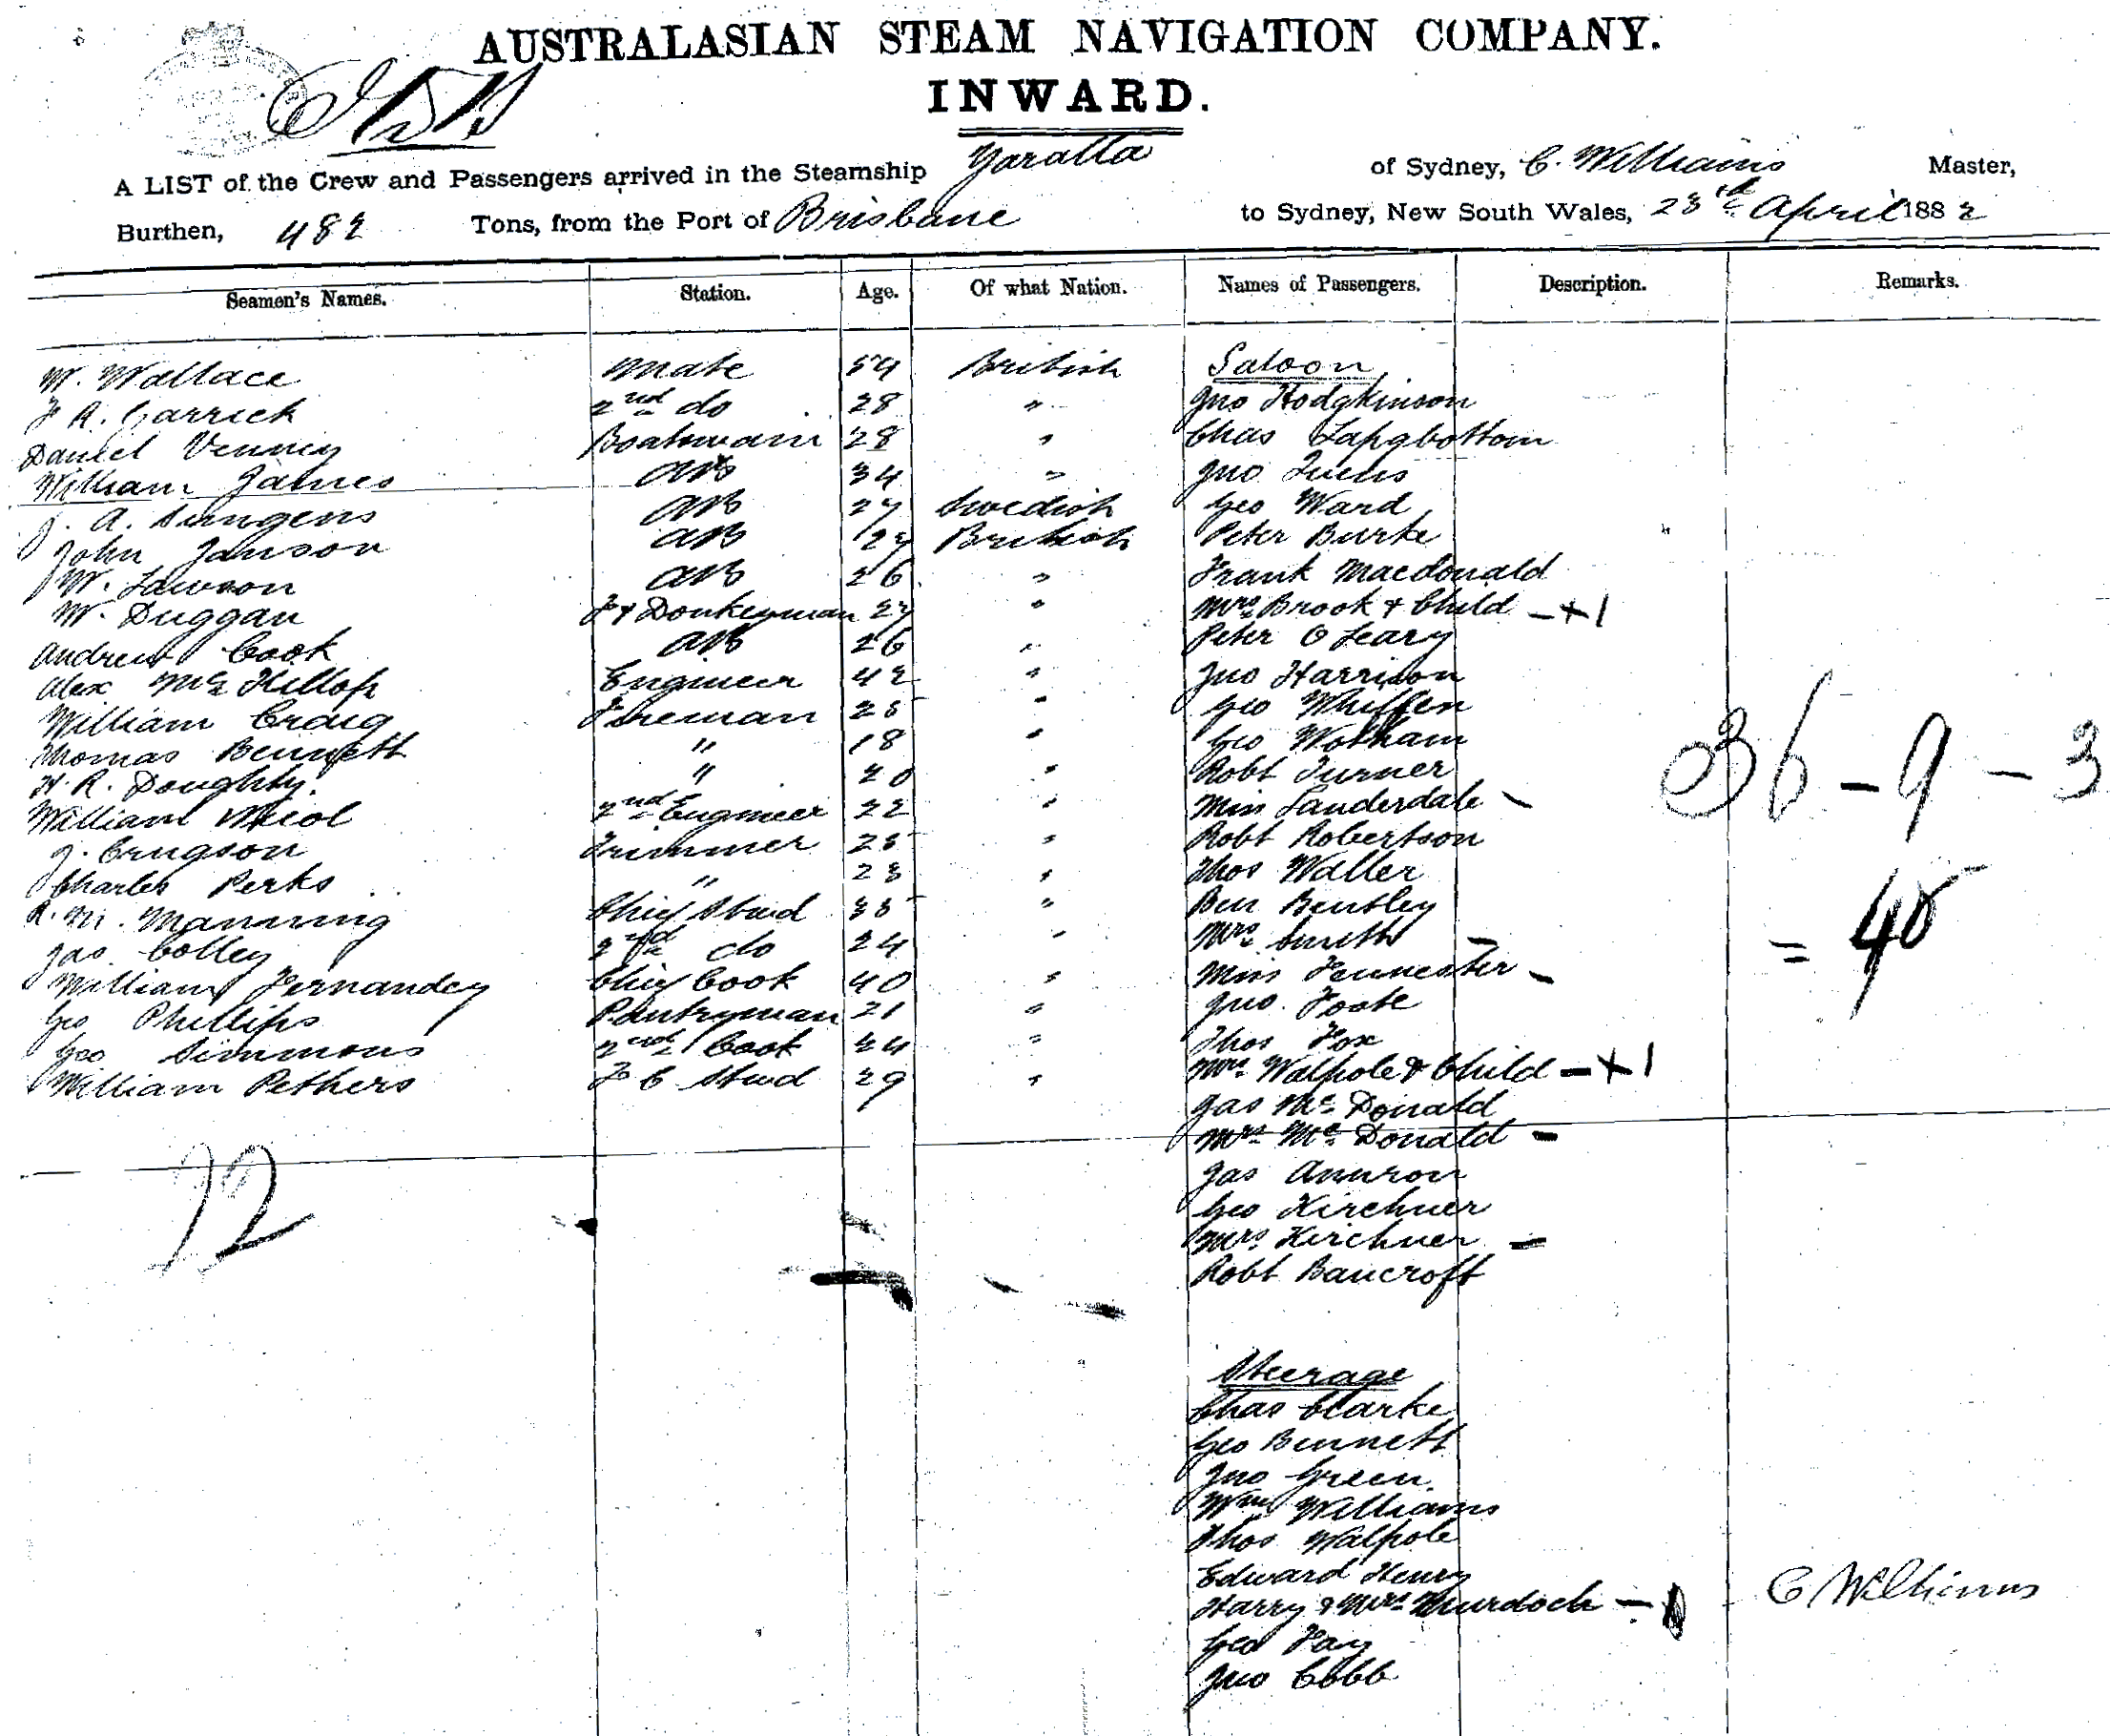 AUSTRALASIAN STEAM NAVIGATION COMPANY.
INWARD.
A LIST of the Crew and Passengers arrived in the Steamship Yaralla of Sydney, C. Williams Master,
Burthen, 482 Tons, from the Port of Brisbane to Sydney, New South Wales, 23rd April 1882
Seamen's Names. Station. Age. Of what Nation. Names of Passengers. Description. Remarks.
W. Wallace mate 54 British
F A. Carrick 2nd do 28 "
Daniel Venney Boatswain 28 "
William James AB 34 "
J. A. AB 27 Swedish
John Janson AB 27 British
W. Lawson AB 26 "
W. Duggan F & Donkeyman 27 "
Andrew Cook AB 26 "
Alex Mc Killop Engineer 42 "
William Craig Fireman 25 "
Thomas Bennett " 18 "
H. R. Doughty. " 20 "
William Nicol 2nd Engineer 22 "
J. Trimmer 25 "
Charles Perks " 23 "
R. M. Mannring Chief Stwd 35 "
Jas. Colley 2nd do 24 "
William Fernandey Chief Cook 40 "
Geo Phillips Pantryman 21 "
Geo Simmons 2nd Cook 24 "
William Pethers F C Stwd 29 "
22
Saloon
Jno Hodgkinson
Chas
Jno
Geo Ward
Peter Burke
Frank Macdonald
Mrs Brook & Child - +1
Peter O Leary
Jno Harrison
Geo Whiffen
Geo Wotham
Robt Turner
Miss Lauderdale -
Robt Robertson
Thos Waller
Ben Bentley
Mrs Smith -
Miss -
Jno. Foote
Thos Fox
Mrs Walpole & Child - +1
Jas Mc Donald
Mrs Mc Donald -
Jas
Geo Kirchner
Mrs Kirchner -
Robt Bancroft
36 - 9 - 3
= 48
Steerage
Chas Clarke
Geo Bennett
Jno Green
Wm Williams
Thos Walpole
Edward Henry
Harry & Mrs Murdoch -
Geo Fay
Jno Cobb
C Williams